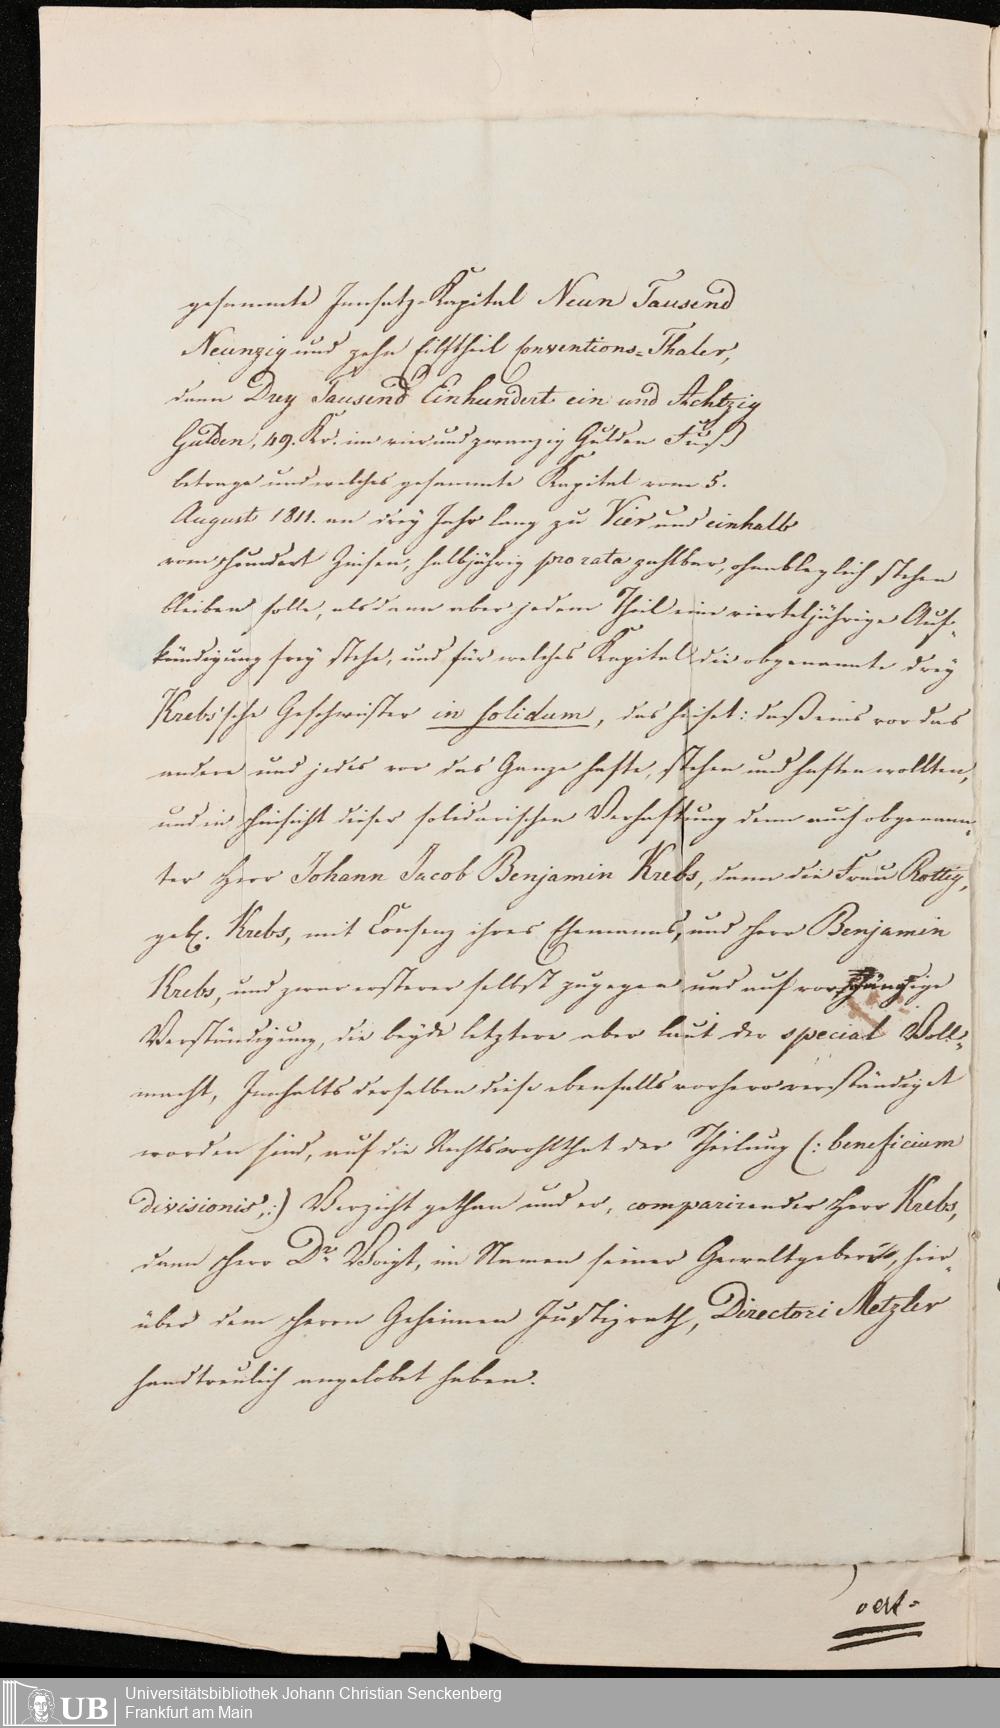 gesammte Innsatz-Kapital Neun Tausend
Neunzig und zehn Eilftheil Conventions-Thaler,
dann Drey Tausend Einhundert ein und Achtzig
Gulden, 49. Kr. im vier und zwanzig Gulden Fuß
betrage und welches gesammte Kapital vom 5.
August 1811. an drey Jahr lang zu Vier und einhalb
vom Hundert Zinsen, halbjährig pro rata zahlbar, ohnableglich stehen
bleiben solle, alsdann aber jedem Theil eine vierteljährige Auf-
kündigung frey stehe, und für welches Kapital die obgenannte drey
Krebs'sche Geschwister in solidum, das heiset: daß eins vor das
andere und jedes vor das Ganze hafte, stehen und haften wollten,
und in Hinsicht dieser solidarischen Verhaftung denn auch obgenann-
ter Herr Johann Jacob Benjamin Krebs, dann die Frau Rottig,
geb. Krebs, mit Consenz ihres Ehemanns, und Herr Benjamin
Krebs, und zwar ersterer selbst zugegen und auf vorgängige
Verständigung, die beyde letztere aber laut der special Voll-
macht, Innhalts derselben diese ebenfalls vorhero verständiget
worden sind, auf die Rechtswohlthat der Theilung (: beneficium
divisionis,:) Verzicht gethan und er, comparirender Herr Krebs,
dann Herr Dr. Voigt, im Namen seiner Gewaltgeber, hier-
über dem Herrn Geheimen Justizrath, Directori Metzler
handtreulich angelobet haben.
vert.
UB
Universitätsbibliothek Johann Christian Senckenberg
Frankfurt am Main